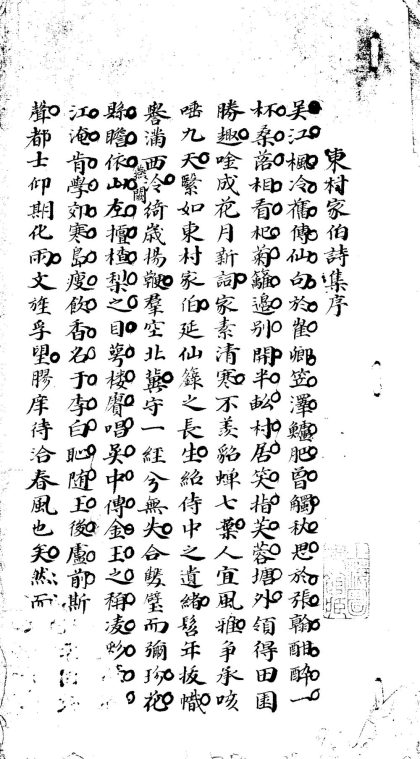 東村家伯詩集序
吳江楓冷舊傳仙句於崔卿笠澤鱸肥曾觸秋思於張翰酣醉一
杯桑落相看杞菊籬邉別開半畝村居笑指芙蓉塘外領得田園
勝趣唫成花月新詞家素清寒不羨貂蟬七葉人宜風雅爭承咳
唾九天緊如東村家伯延仙籙之長生紹侍中之遺緒髫年拔幟
譽滿西泠綺歲揚鞭羣空北冀守一經兮無失合雙璧而彌珍花
縣瞻依山左擅楂梨之目萼樓賡唱吳中傳金玉之稱凌
燕關
江淹肯學郊寒島瘦飲香名于李白恥隨王後盧前斯
聲都士仰期化雨文旌孚望膠庠待洽春風也矣然而